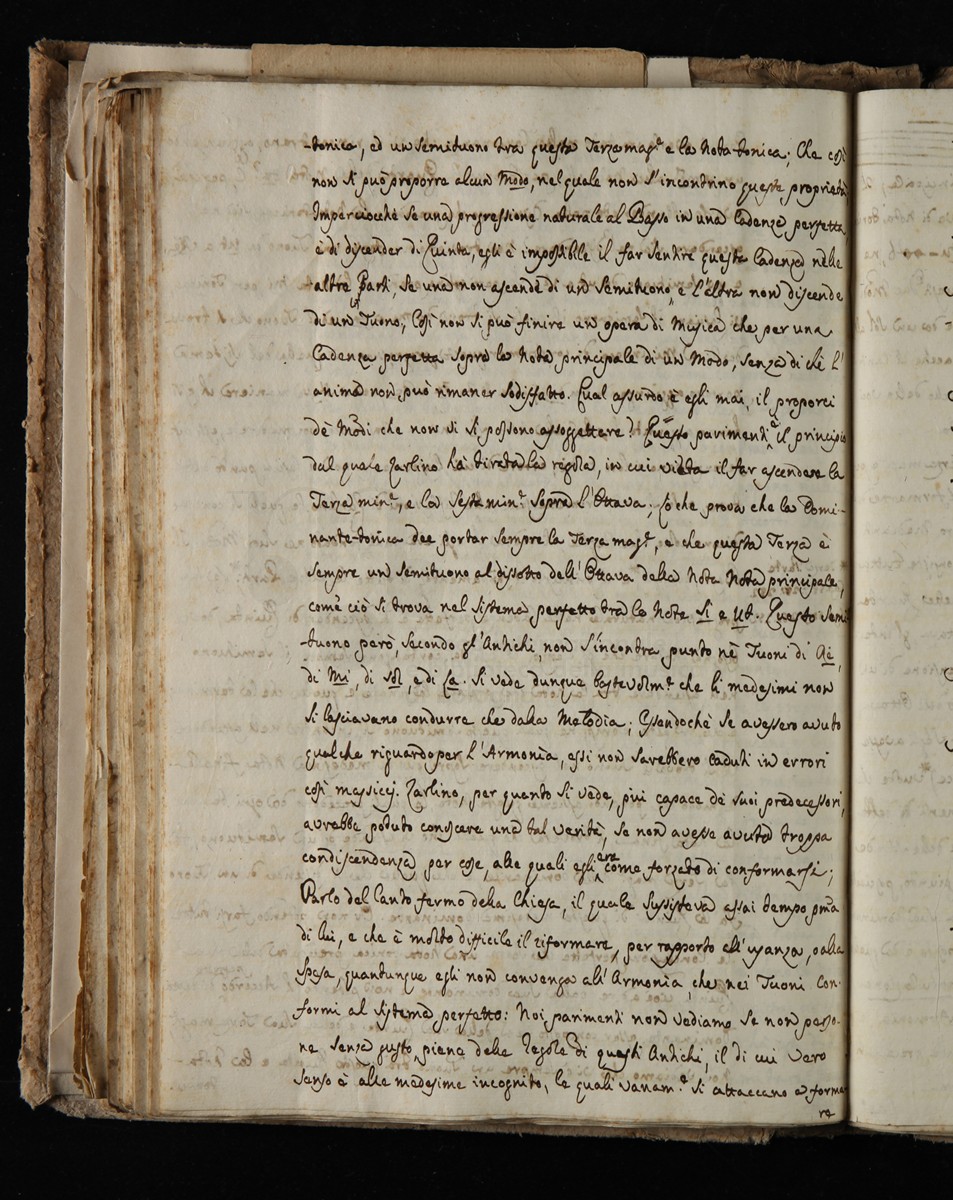 -tonica, ed un Semituono tra questa Terza mag.e e la Nota-tonica; Che così
non si può proporre alcun Modo, nel quale non s'incontrino queste proprietà
Imperciocchè se una progressione naturale al Basso in una Cadenza perfetta,
è di discender di Quinta, egli è impossibile il far sentire questa Cadenza nelle
altre Parti, se una non ascende di un Semituono, e l'altra non discende
di un Tuono, Così non si può finire un opera di Musica che per una
Cadenza perfetta sopra la Nota principale di un Modo, senza di chè l'
anima non può rimaner sodisfatto. Qual assurdo è egli mai, il proporci
dè Modi che non vi si possono assoggettare? Questo parimenti è il principio
dal quale Zarlino hà tirata la regola, in cui vieta il far ascendere la
Terza min.e, e la Sesta min.e sopra l'Ottava; Lo che prova che la Domi-
nante-tonica dee portar sempre la Terza mag.e, e che questa Terza è
sempre un semituono al dissotto dell'Ottava della Nota Nota principale,
come ciò si trova nel sistema perfetto tra le Note Si e Ut. Questo semi
-tuono però, secondo gl'Antichi, non s'incontra punto nè Tuoni di Rè,
di Mi, di Sol, e di La. Si vede dunque bastevolm.e che li medesimi non
si lasciavano condurre che dalla Melodia; Essendochè se avessero avuto
qualche riguardo per l'Armonia, essi non sarebbero caduti in errori
così massicj. Zarlino, per quanto si vede, più capace dè suoi predecessori,
avrebbe potuto conoscere una tal verità, se non avesse avuta troppa
condiscendenza per cose, alle quali egli era come forzato di conformarsi;
Parlo del Canto fermo della Chiesa, il quale sussisteva assai tempo pma
di lui, e che è molto difficile il riformare, per rapporto all'usanza, o alla
spesa, quantunque egli non convenga all'Armonia, che nei Tuoni Con-
formi al sistema perfetto: Noi parimenti non vediamo se non perso-
ne senza gusto, piene delle Regole di questi Antichi, il di cui vero
senso è alle medesime incognito, le quali vanam.e si attaccano a forma
re